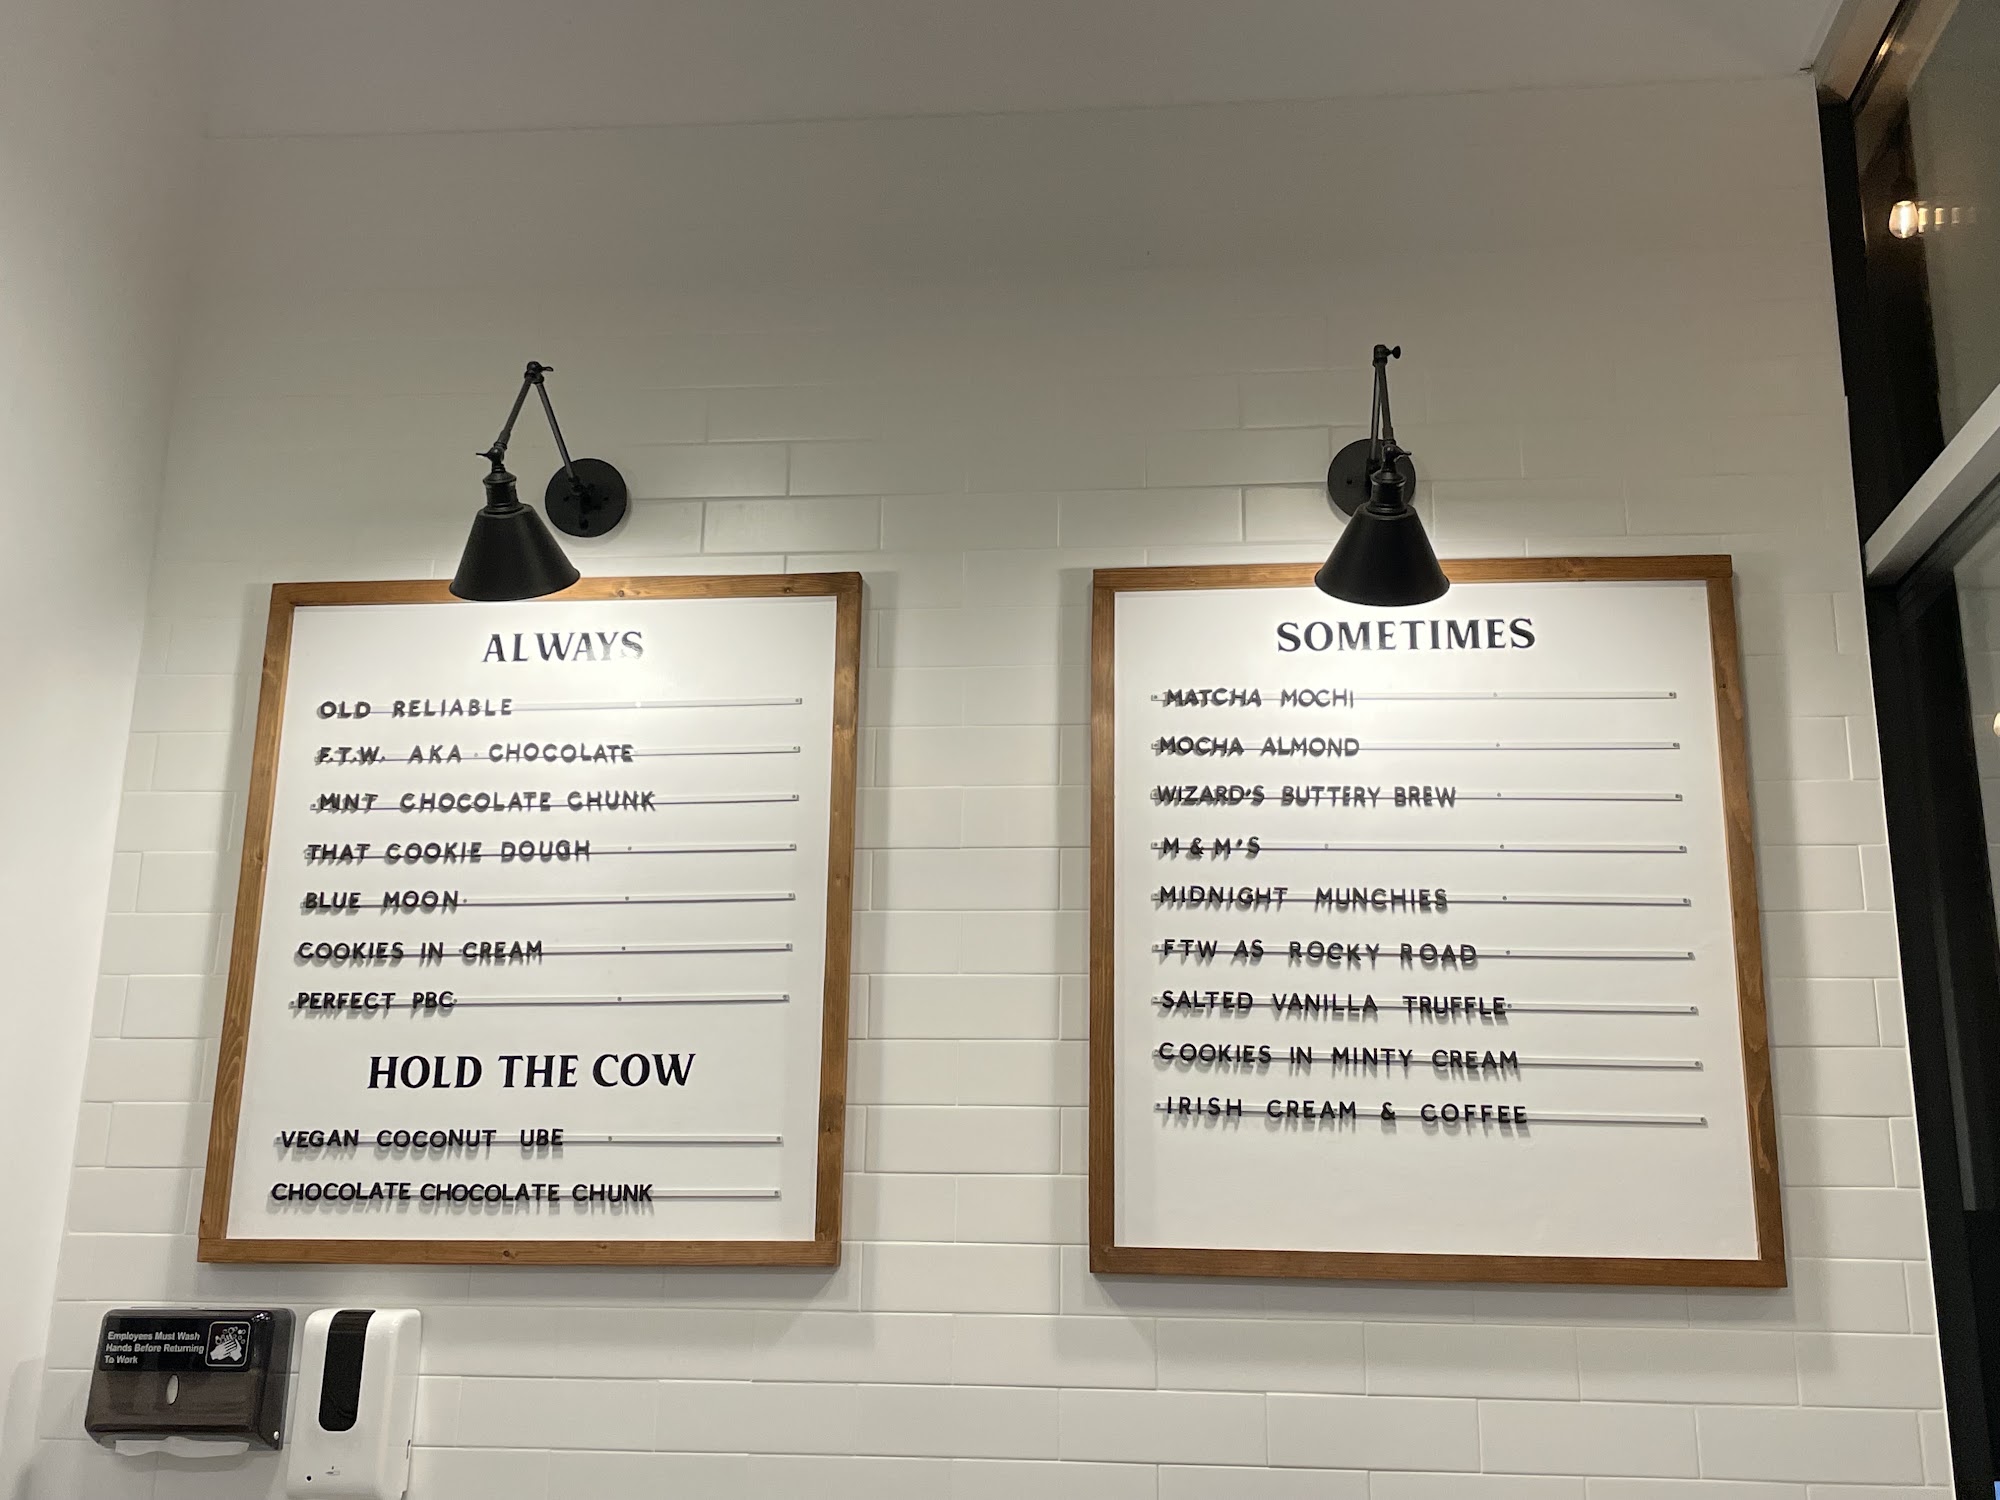 ALWAYS
OLD RELIABLE
F.T.W. AKA CHOCOLATE
MINT CHOCOLATE CHUNK
THAT COOKIE DOUGH
BLUE MOON
COOKIES IN CREAM
PERFECT PBC
HOLD THE COW
VEGAN COCONUT UBE
CHOCOLATE CHOCOLATE CHUNK
SOMETIMES
MATCHA MOCHI
MOCHA ALMOND
WIZARD'S BUTTERY BREW
M & M'S
MIDNIGHT MUNCHIES
FTW AS ROCKY ROAD
SALTED VANILLA TRUFFLE
COOKIES IN MINTY CREAM
IRISH CREAM & COFFEE
Employees Must Wash
Hands Before Returning
To Work